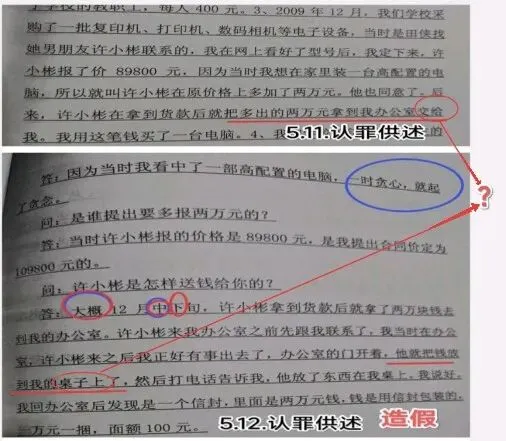 了学校的教职工，每人 400 元。3、2009 年 12 月，我们学校采
购了一批复印机、打印机、数码相机等电子设备，当时是田侠找
她男朋友许小彬联系的，我在网上看好了型号后，我定下来，许
小彬报了价 89800 元，因为当时我想在家里装一台高配置的电
脑，所以就叫许小彬在原价格上多加了两万元。他也同意了。后
来，许小彬在拿到货款后就把多出的两万元拿到我办公室交给
我。我用这笔钱买了一台电脑。4、我
的
5.11.认罪供述
答：因为当时我看中了一部高配置的电脑，一时贪心，就起
了贪念。
?
问：是谁提出要多报两万元的？
答：当时许小彬报的价格是 89800 元，是我提出合同价定为
109800 元的。
问：许小彬是怎样送钱给你的？
答：大概 12 月中下旬，许小彬拿到货款后就拿了两万块钱去
到我的办公室。许小彬来我办公室之前先跟我联系了，我当时在办公
室，许小彬来之后我正好有事出去了，办公室的门开着，他就把钱放
到我的桌子上了，然后打电话告诉我，他放了东西在我桌上。我说好。
我回办公室后发现是一个信封，里面是两万元钱，钱是用信封包装的。
万元一捆，面额 100 元。
5.12.认罪供述
造假